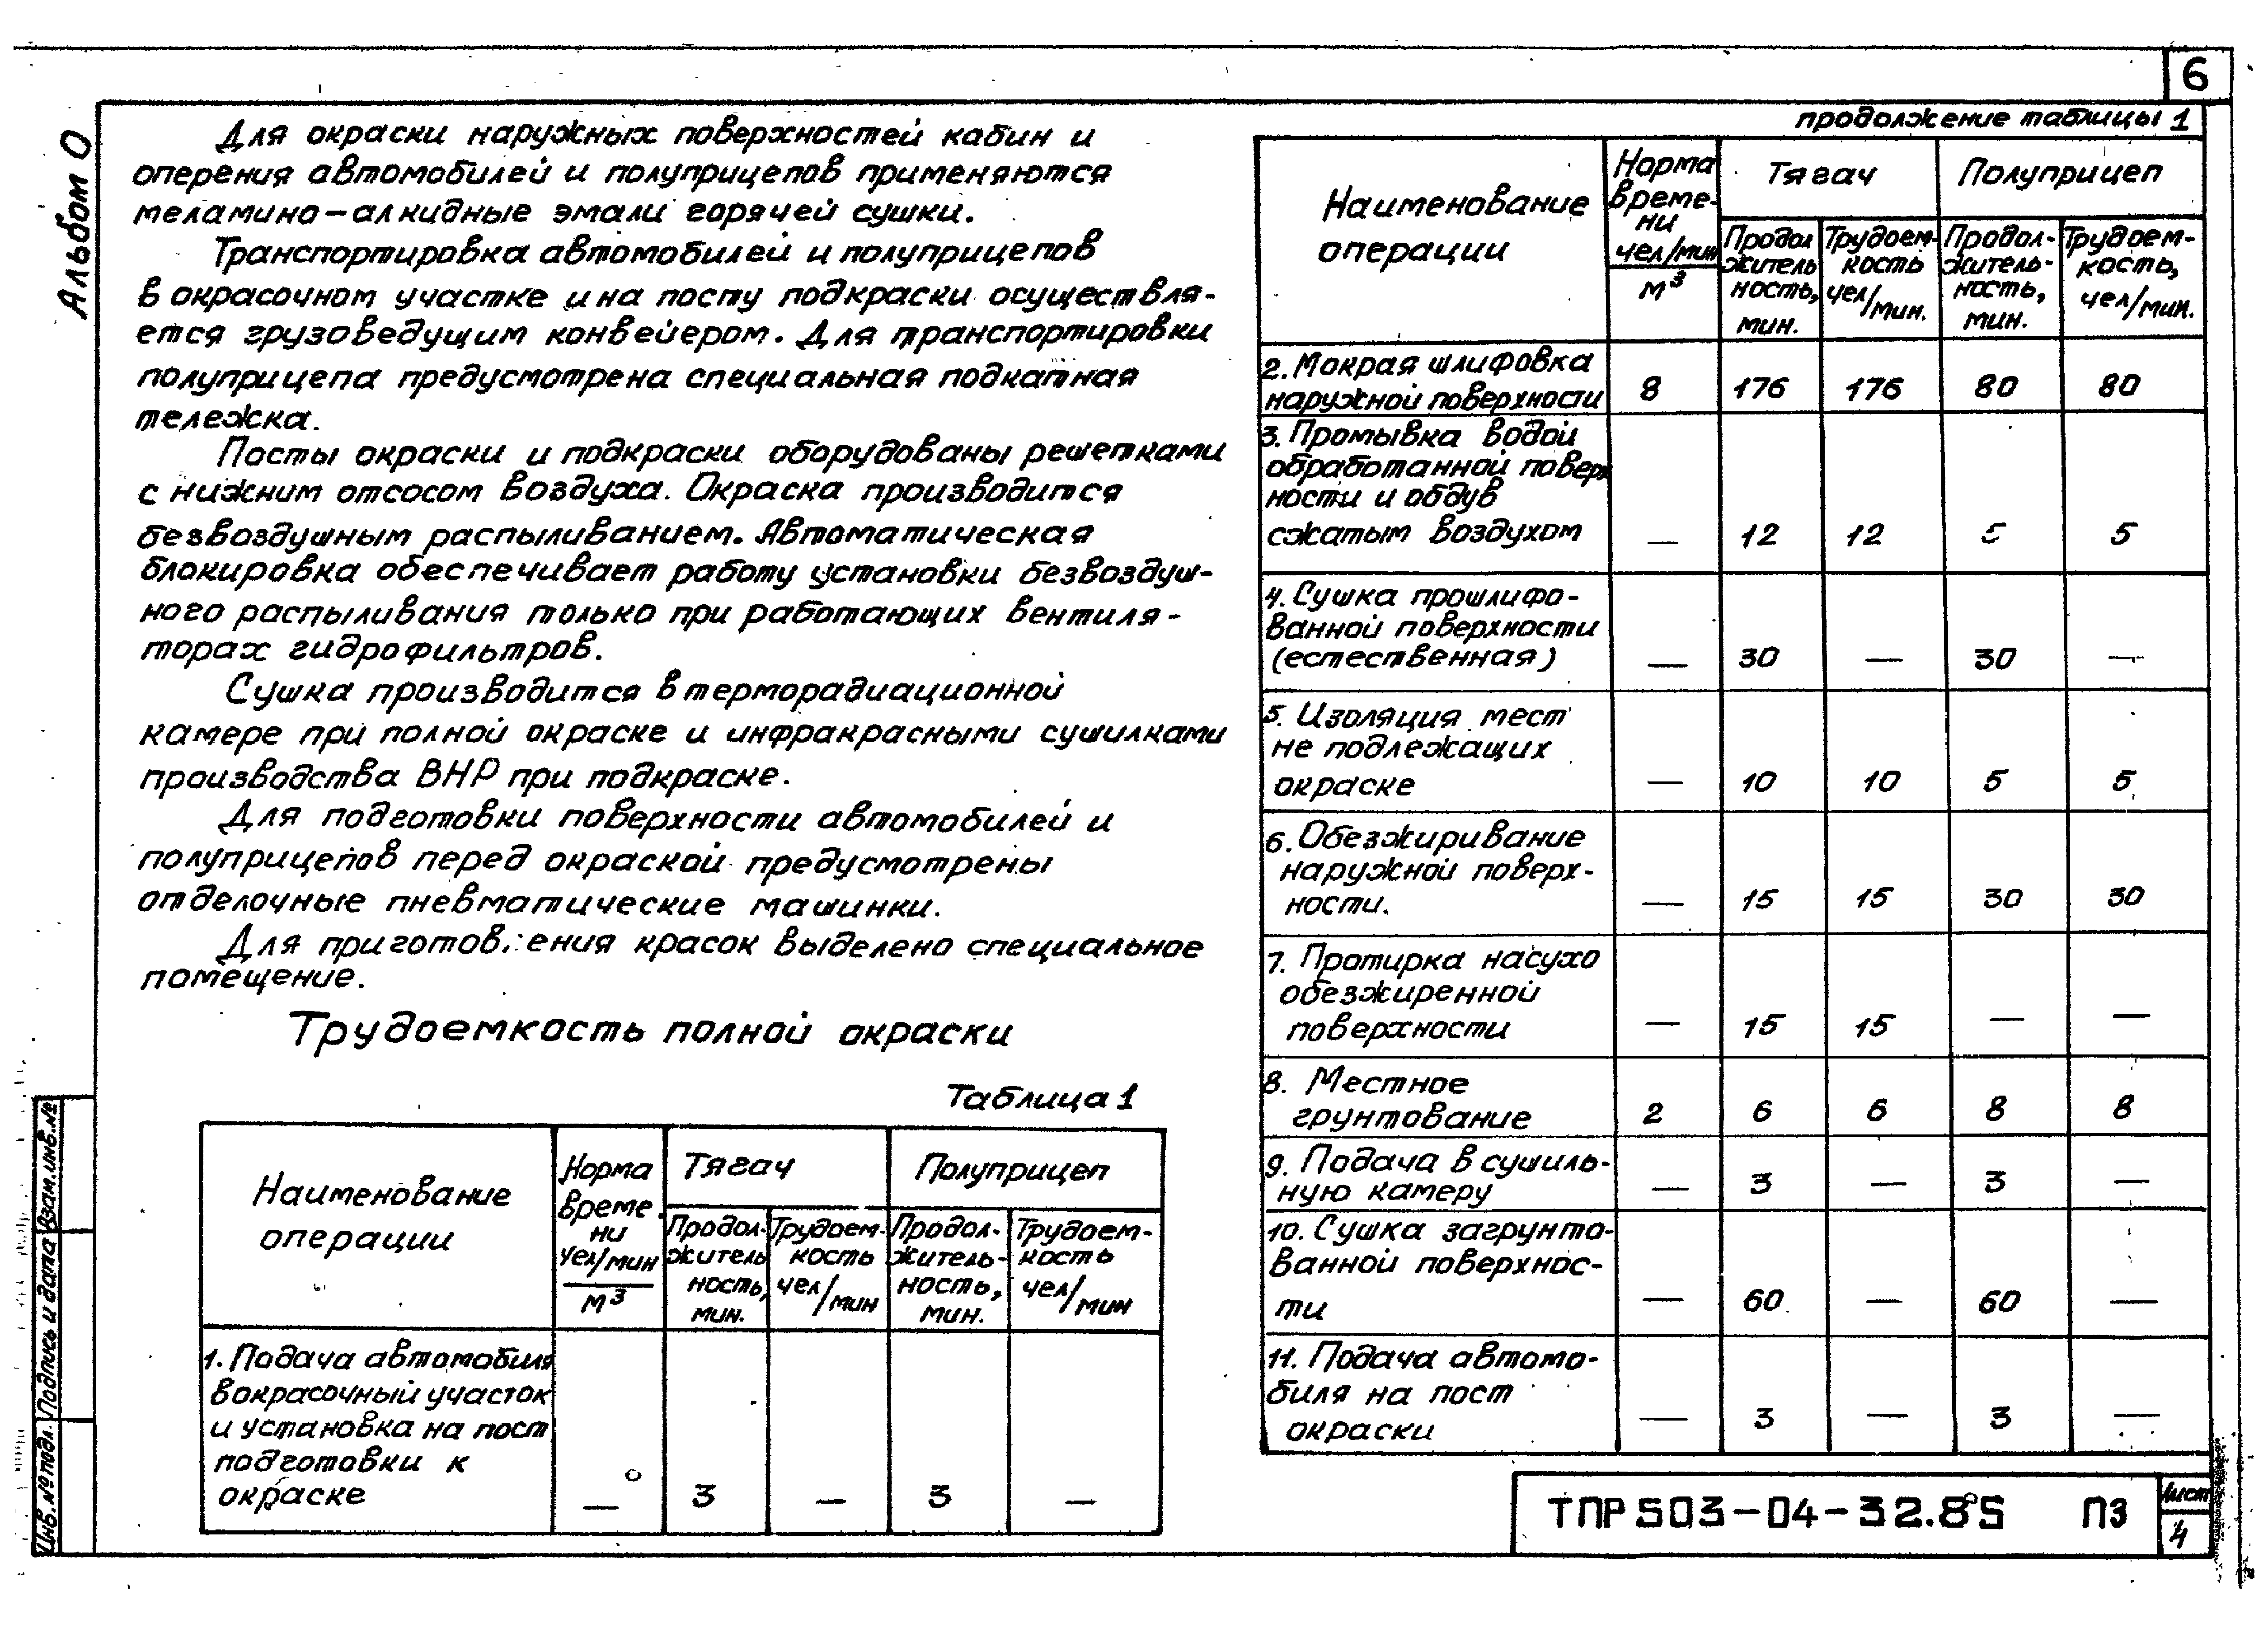 6
Альбом 0
Для окраски наружных поверхностей кабин и
оперения автомобилей и полуприцепов применяются
меламино-алкидные эмали горячей сушки.
Транспортировка автомобилей и полуприцепов
в окрасочном участке и на посту подкраски осуществля-
ется грузоведущим конвейером. Для транспортировки
полуприцепа предусмотрена специальная подкатная
тележка.
Посты окраски и подкраски оборудованы решетками
с нижним отсосом воздуха. Окраска производится
безвоздушным распыливанием. Автоматическая
блокировка обеспечивает работу установки безвоздуш-
ного распыливания только при работающих вентиля-
торах гидрофильтров.
Сушка производится в терморадиационной
камере при полной окраске и инфракрасными сушилками
производства ВНР при подкраске.
Для подготовки поверхности автомобилей и
полуприцепов перед окраской предусмотрены
отделочные пневматические машинки.
Для приготов.:ения красок выделено специальное
помещение.
Трудоемкость полной окраски
Таблица 1
Наименование операции | Норма време-ни чел/мин м³ | Тягач | Полуприцеп
Продол-житель ность, мин. | Трудоем-кость чел/мин | Продол-житель-ность, мин. | Трудоем-кость чел/мин
1. Подача автомобиля
в окрасочный участок
и установка на пост
подготовки к
окраске — 3 — 3 —
продолжение таблицы 1
Наименование операции | Норма време-ни чел/мин м³ | Тягач | Полуприцеп
Продол житель ность, мин. | Трудоем-кость чел/мин. | Продол-житель-ность, мин. | Трудоем-кость, чел/мин.
2. Мокрая шлифовка
наружной поверхности 8 176 176 80 80
3. Промывка водой
обработанной поверх
ности и обдув
сжатым воздухом — 12 12 5 5
4. Сушка прошлифо-
ванной поверхности
(естественная) — 30 — 30 —
5. Изоляция мест
не подлежащих
окраске — 10 10 5 5
6. Обезжиривание
наружной поверх-
ности. — 15 15 30 30
7. Протирка насухо
обезжиренной
поверхности — 15 15 — —
8. Местное
грунтование 2 6 6 8 8
9. Подача в сушиль-
ную камеру — 3 — 3 —
10. Сушка загрунто-
ванной поверхнос-
ти — 60 — 60 —
11. Подача автомо-
биля на пост
окраски — 3 — 3 —
Инв. № подл. Подпись и дата Взам. инв. №
ТПР 503-04-32.85 ПЗ
Лист
4